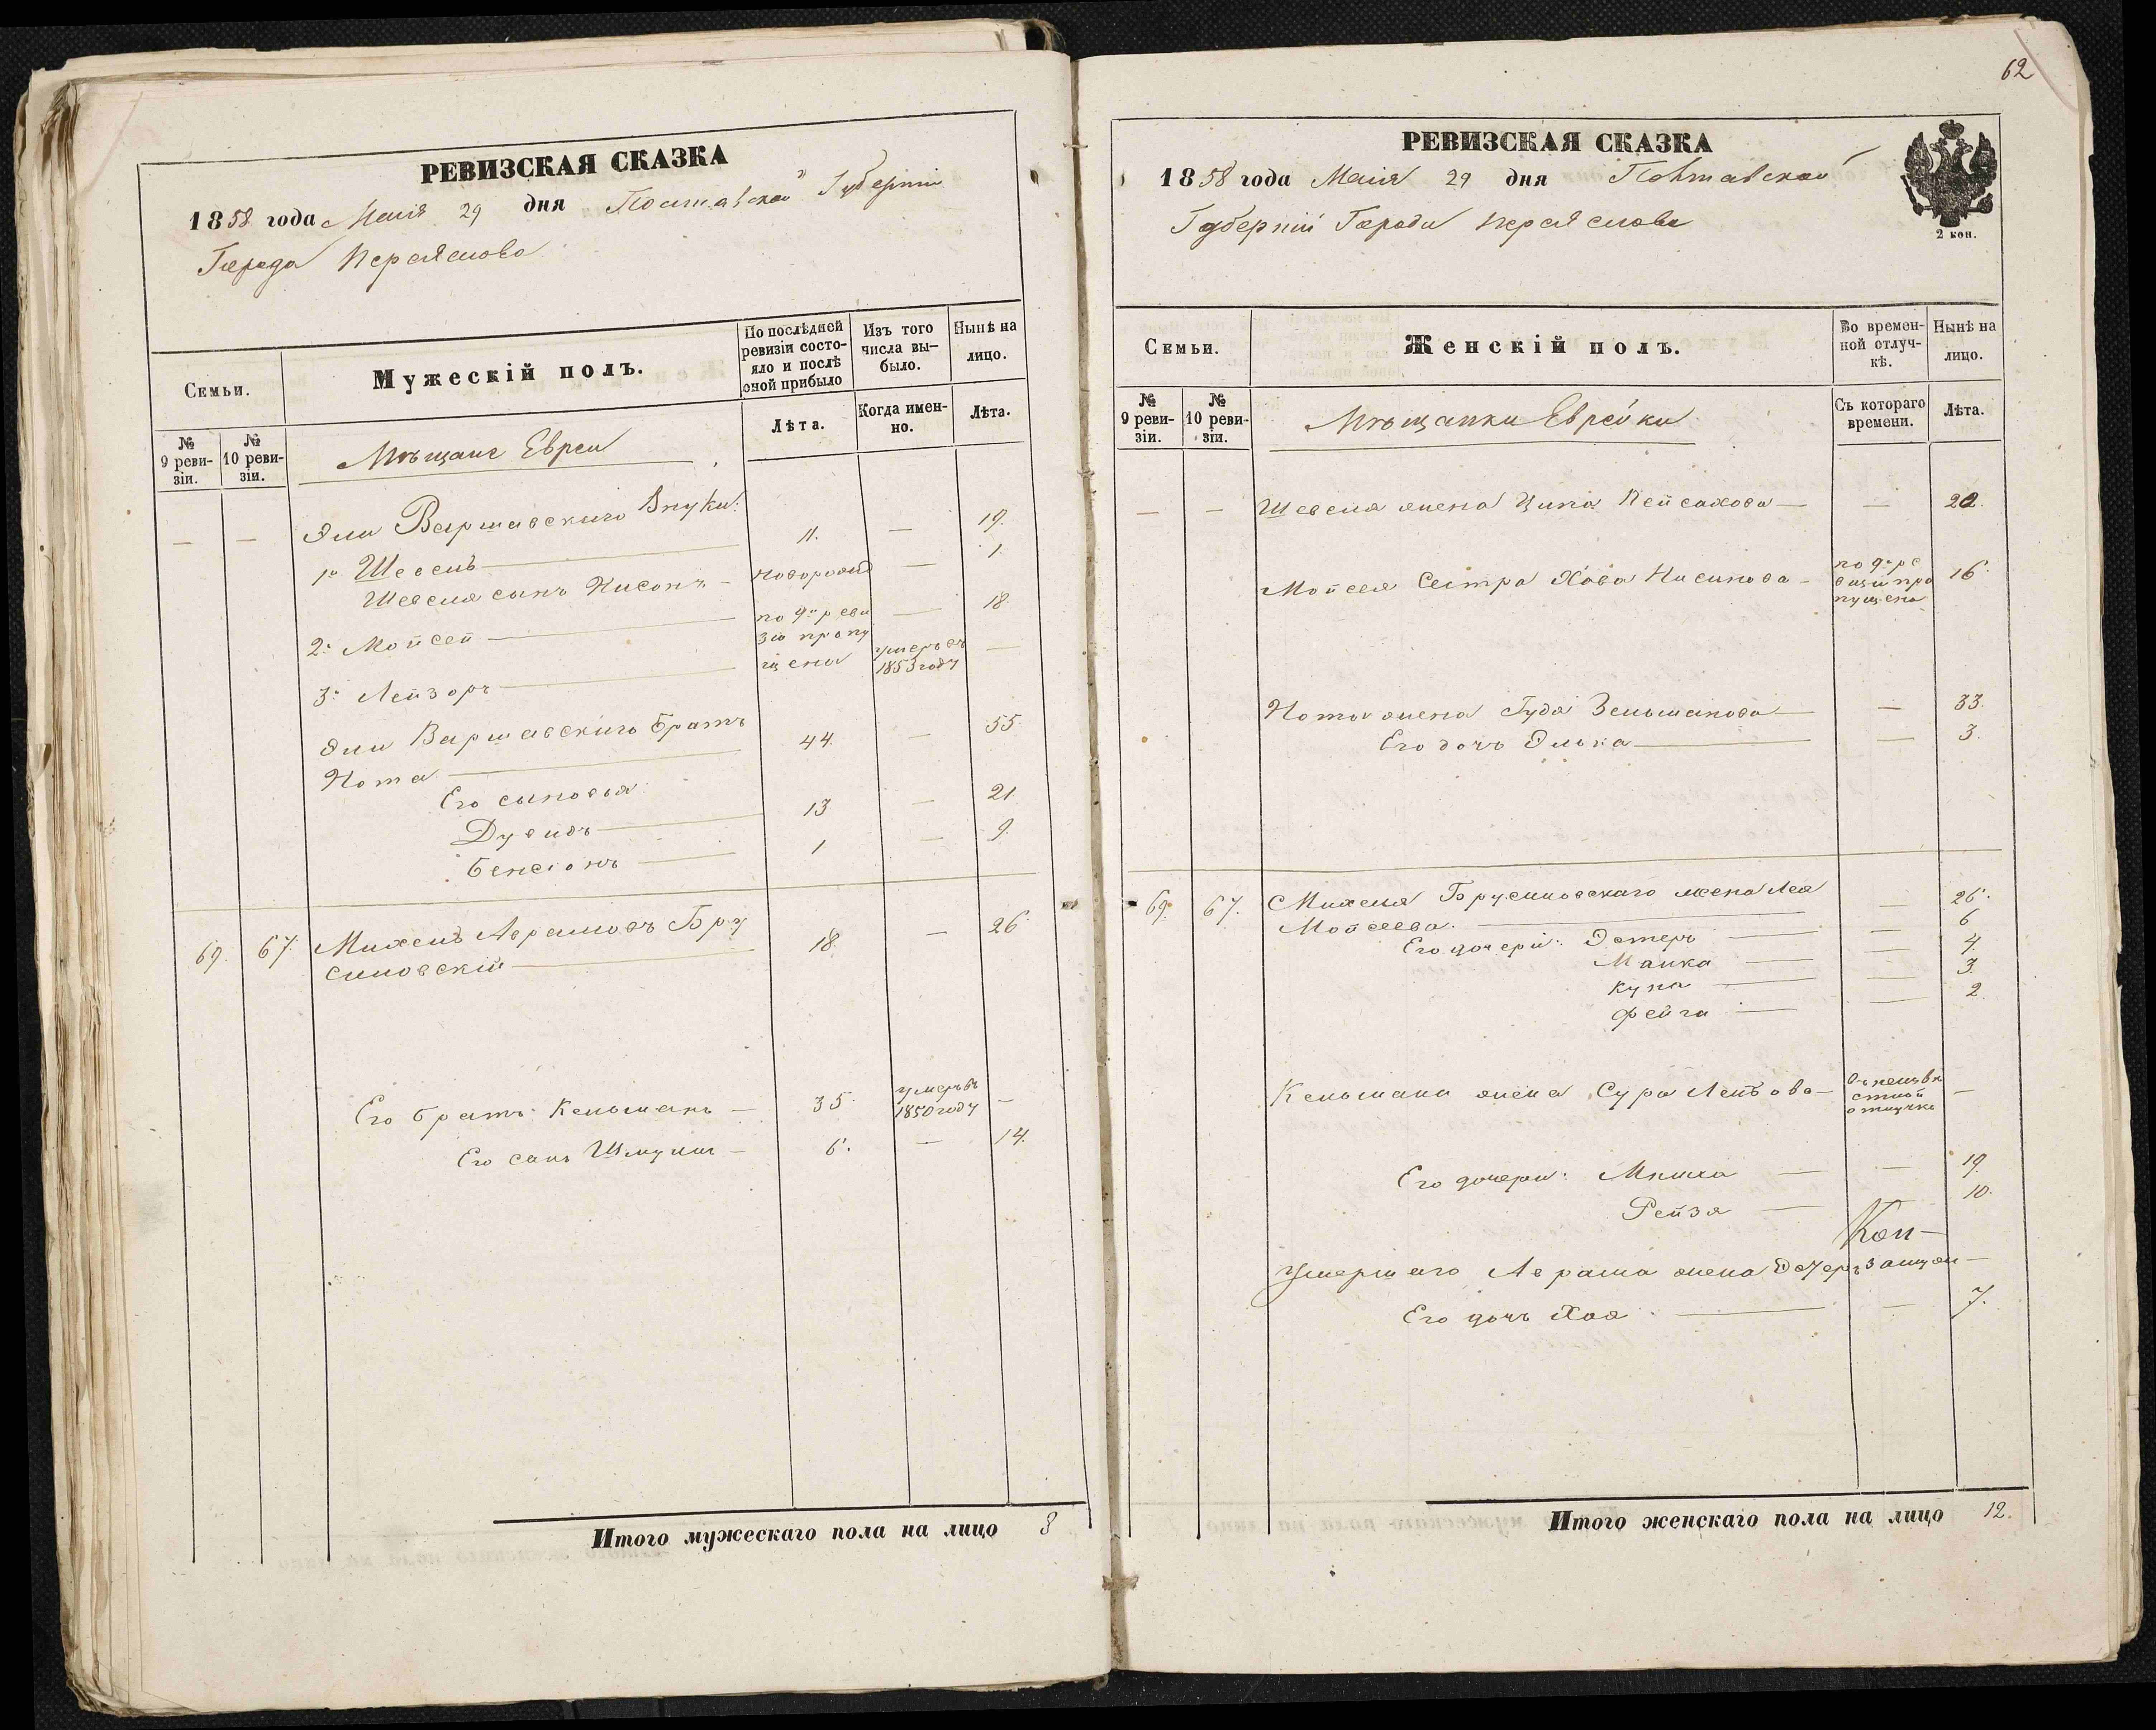 62
РЕВИЗСКАЯ СКАЗКА
1858 года Маія 29 дня Полтавской Губерніи
Города Переяслова
Семьи.
Мужескій полъ.
По послѣдней ревизіи состояло и послѣ оной прибыло
Изъ того числа вы-было.
Нынѣ на лицо.
№ 9 реви-зіи.
№ 10 реви-зіи.
Мѣщане Евреи
Лѣта.
Когда имен-но.
Лѣта.
— — Эли Варшавскаго Внуки:
1й Шевель — 11. — 19.
Шевеля сынъ Нисонъ — новорожд — 1.
2й Мойсей — по 9й реви — 18.
3й Лейзоръ — зіи пропу щены умеръ въ 1853 году —
Эли Варшавскаго братъ
Нота — 44. — 55.
Его сыновья:
Дувидъ — 13 — 21.
Бенсіонъ — 1 — 9.
69. 67. Михель Аврамовъ Бру
силовскій — 18. — 26
Его братъ Кельманъ — 35. умеръ въ 1850 году —
Его сынъ Шмуль — 6. — 14.
Итого мужескаго пола на лицо 8
РЕВИЗСКАЯ СКАЗКА
1858 года Маія 29 дня Полтавской
Губерніи Города Переяслова
2 коп.
Семьи.
Женскій полъ.
Во времен-ной отлуч-кѣ.
Нынѣ на лицо.
№ 9 реви-зіи.
№ 10 реви-зіи.
Мѣщанки Еврейки
Съ котораго времени.
Лѣта.
— — Шевеля жена Ципа Пейсахова — — 22.
Мойсея Сестра Хава Нисинова — по 9й ре визіи про пущена 16.
Ноты жена Гуда Зельманова — — 33.
Его дочь Элька — — 3.
69. 67. Михеля Брусиловскаго жена Лея
Мойсеева. — — 26.
Его дочери: Эстеръ — — 6
Малка — — 4.
Куна — — 3.
Фейга — — 2.
Кельмана жена Сура Лейбова — въ неизвѣ стной отлучкѣ —
Его дочери: — — 19.
Рейзя — 10.
Умершаго Аврама жена Эстеръ —
Его дочь Хая — — 7.
Итого женскаго пола на лицо 12.